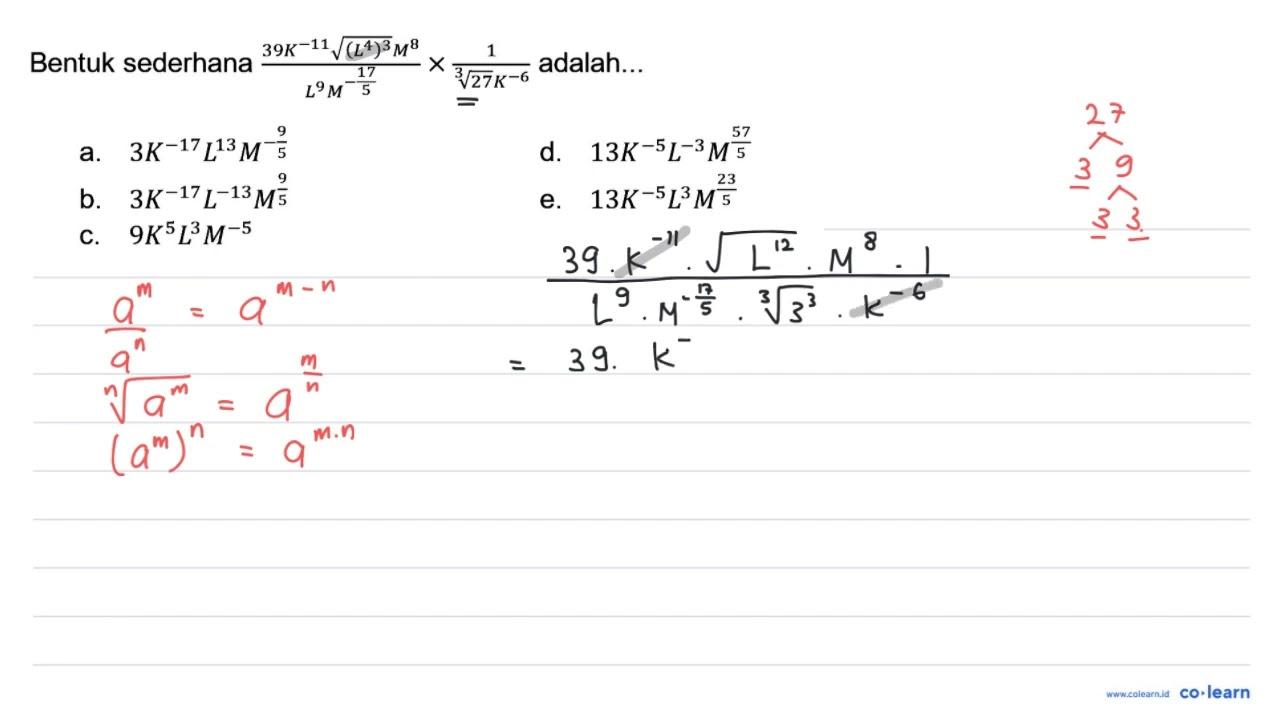 Bentuk sederhana \frac{39K^{-11}\sqrt{(L^4)^3}M^8}{L^9M^{-\frac{17}{5}}} × \frac{1}{\sqrt[3]{27}K^{-6}} adalah...
a. 3K^{-17}L^{13}M^{-\frac{9}{5}}
b. 3K^{-17}L^{-13}M^{\frac{9}{5}}
c. 9K^5L^3M^{-5}
d. 13K^{-5}L^{-3}M^{\frac{57}{5}}
e. 13K^{-5}L^3M^{\frac{23}{5}}
27
3 9
3 3
\frac{39 . K^{-11} . \sqrt{L^{12}} . M^8 . 1}{L^9 . M^{-\frac{17}{5}} . \sqrt[3]{3^3} . K^{-6}}
= 39. K^-
\frac{a^m}{a^n} = a^{m-n}
\sqrt[n]{a^m} = a^{\frac{m}{n}}
(a^m)^n = a^{m.n}
www.colearn.id co·learn